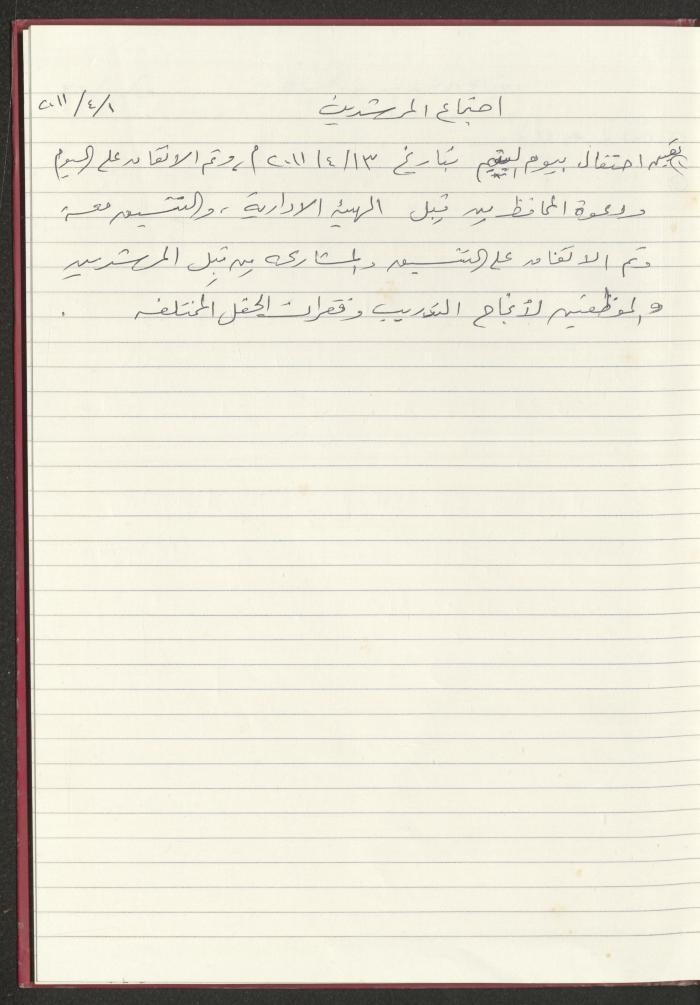 اجتماع المرشدين ٢٠١١/٤/١
احتفال بيوم اليتيم بتاريخ ٢٠١١/٤/١٣م، وتم الاتفاق على اليوم
ودعوة المحافظ من قبل الهيئة الادارية، والتنسيق معه
وتم الاتفاق على التنسيق والمشاركة من قبل المرشدين
والموظفين لأنجاح التدريب وفقرات الحفل المختلفه .